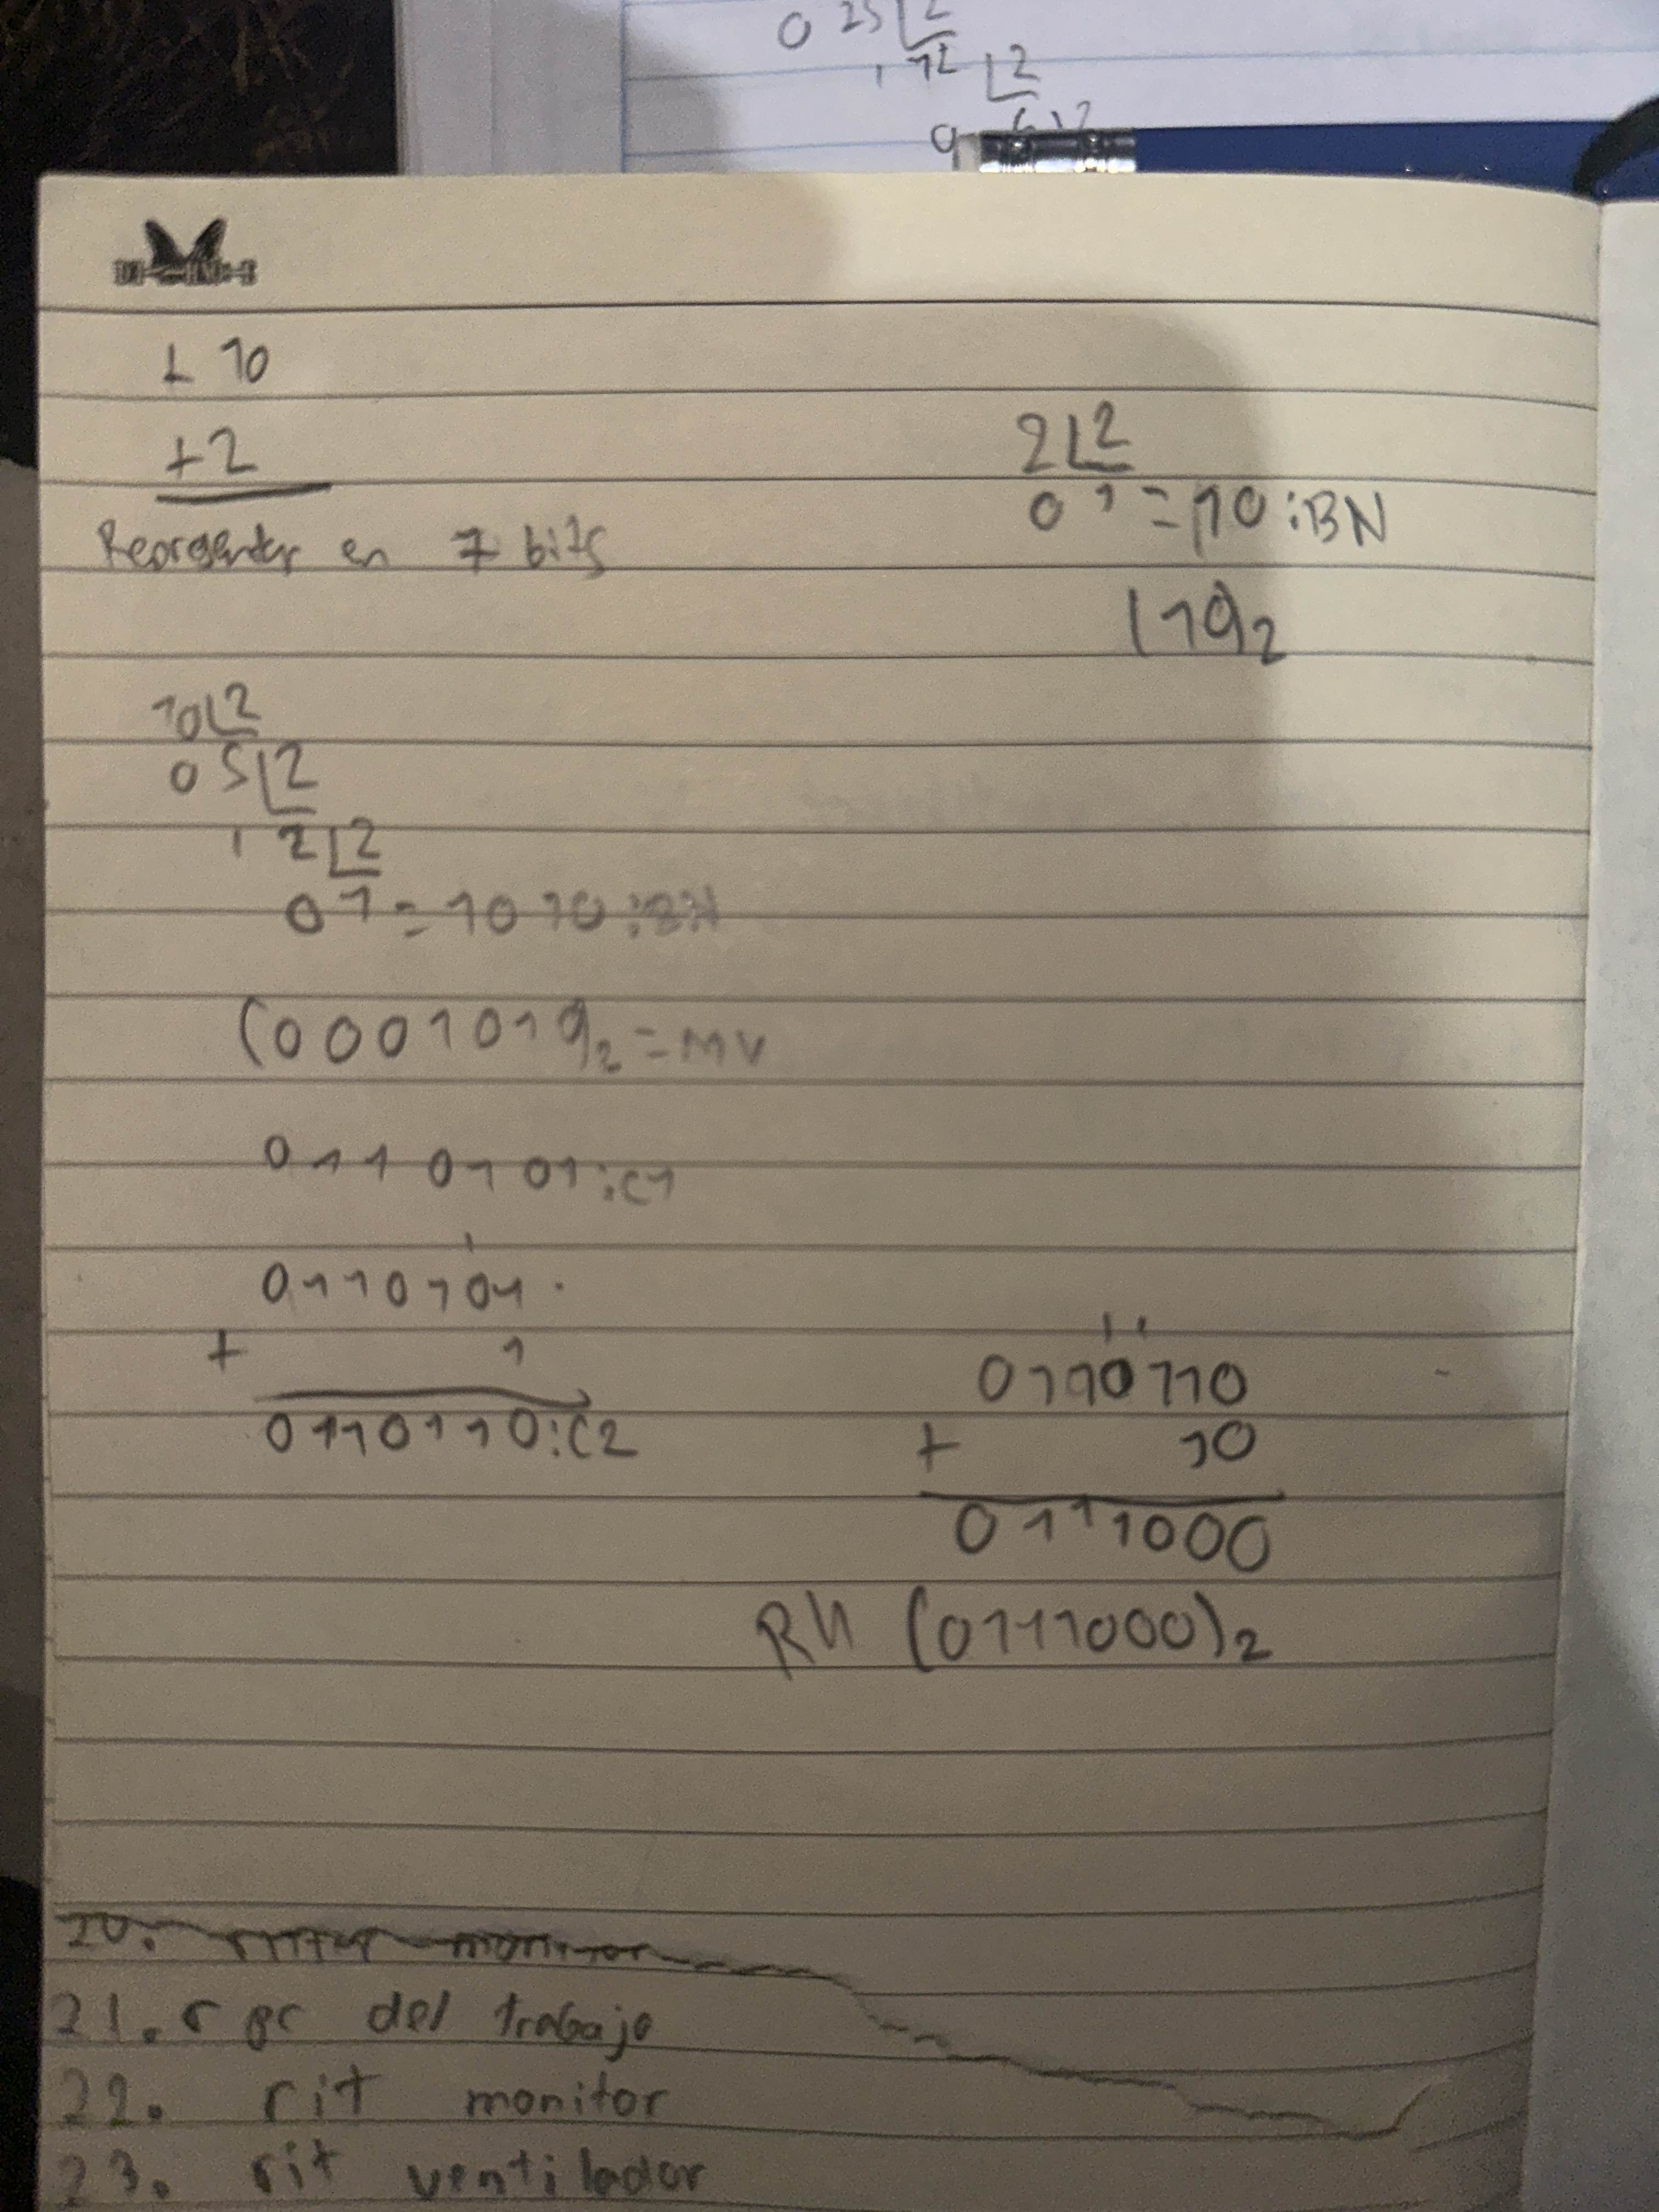 0 25 2
1 12 2
0 6 2
± 10
+2
Reorgentar en 7 bits
2 2
0 1 = 10 :BN
(10)2
10 2
0 5 2
1 2 2
0 1 = 1010 :BN
(0001010)2 = MV
0110101 :C1
1
0110101
+ 1
0110110 :C2
11
0110110
+ 10
0111000
R// (0111000)2
20. monitor
21. r pc del trabajo
22. rit monitor
23. rit ventilador